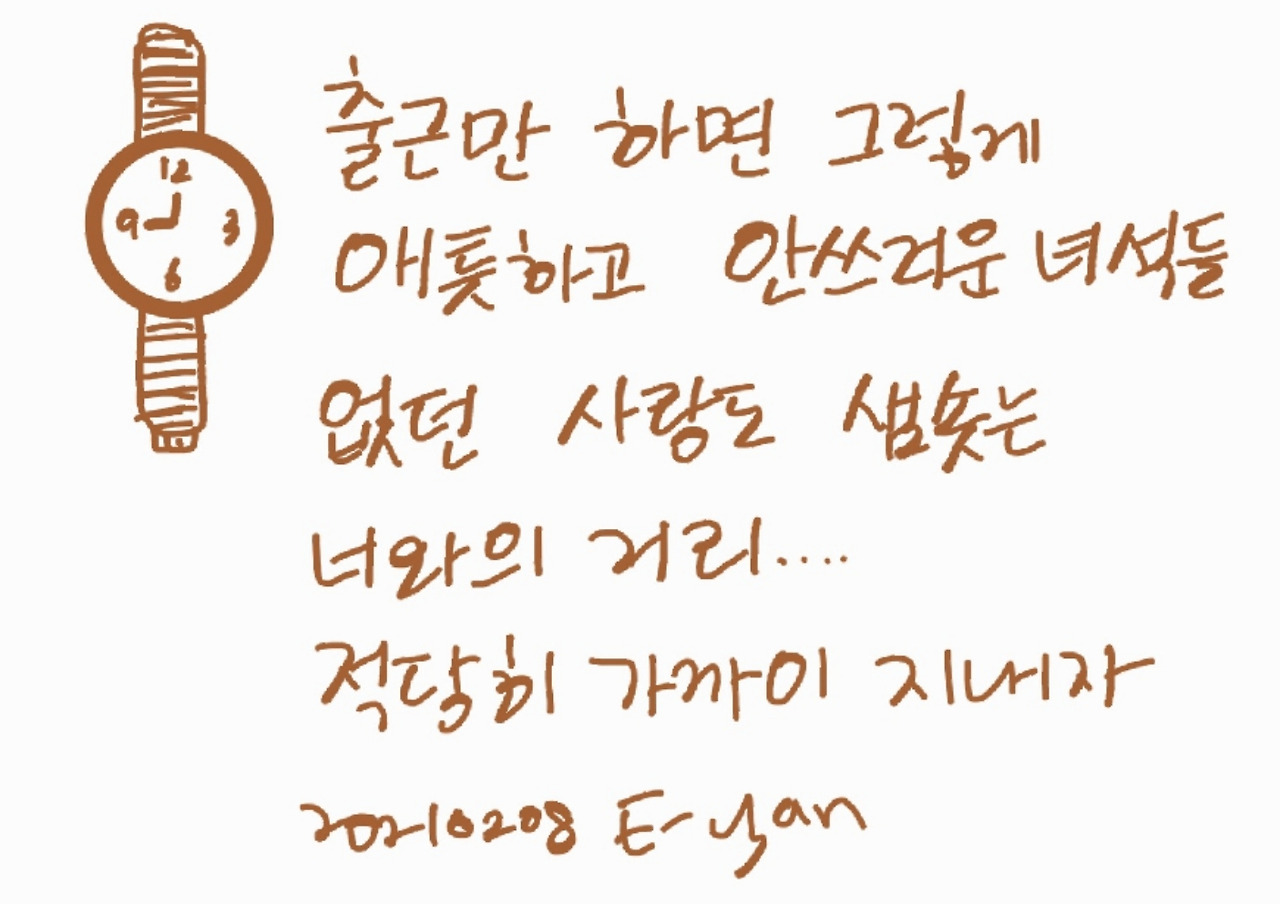 12
9 3
6
출근만 하면 그렇게
애틋하고 안쓰러운 녀석들
없던 사랑도 샘솟는
너와의 거리....
적당히 가까이 지내자
20210208 E-yan